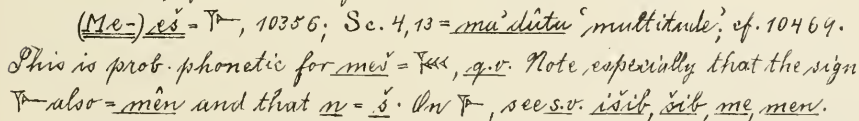 (Me-) eš = 𒈨, 10356; Sc. 4, 13 = ma'dûtu 'multitude'; cf. 10469.
This is prob. phonetic for meš = 𒈨𒌍, q.v. Note especially that the sign
𒈨 also = mên and that n = š. On 𒈨, see s.v. išib, šib, me, men.